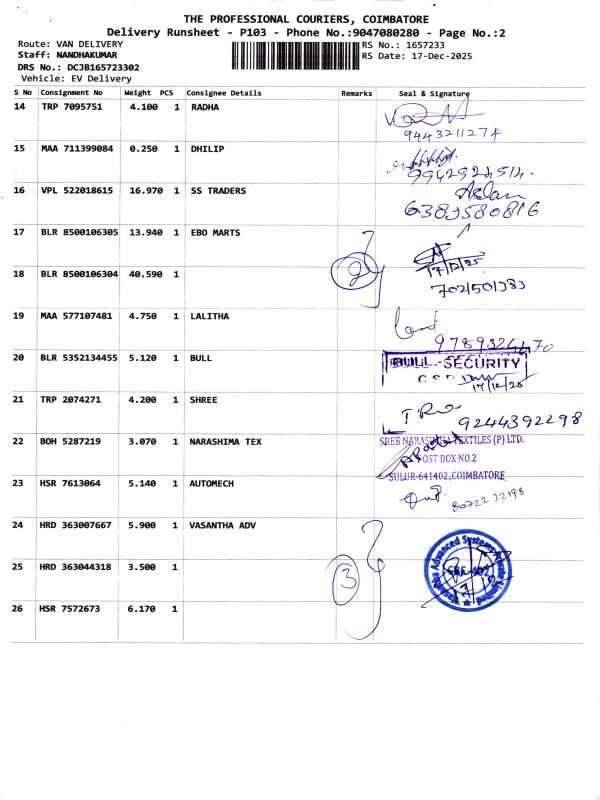 THE PROFESSIONAL COURIERS, COIMBATORE
Delivery Runsheet - P103 - Phone No.:9047080280 - Page No.:2
Route: VAN DELIVERY RS No.: 1657233
Staff: NANDHAKUMAR RS Date: 17-Dec-2025
DRS No.: DCJB165723302
Vehicle: EV Delivery
S No Consignment No Weight PCS Consignee Details Remarks Seal & Signature
14 TRP 7095751 4.100 1 RADHA
9443211274
15 MAA 711399084 0.250 1 DHILIP
9942924514.
16 VPL 522018615 16.970 1 SS TRADERS
Aslam
6383580816
17 BLR 8500106305 13.940 1 EBO MARTS
17/12/25
18 BLR 8500106304 40.590 1 2
19 MAA 577107481 4.750 1 LALITHA
20 BLR 5352134455 5.120 1 BULL BULL - SECURITY
17/12/25
21 TRP 2074271 4.200 1 SHREE
9244392298
22 BOH 5287219 3.070 1 NARASHIMA TEX SREE NARASIMHA TEXTILES (P) LTD.
POST BOX NO.2
SULUR-641402, COIMBATORE
23 HSR 7613064 5.140 1 AUTOMECH
8072232198
24 HRD 363007667 5.900 1 VASANTHA ADV
25 HRD 363044318 3.500 1 3 Advanced Systems Private Limited
CBE-402
26 HSR 7572673 6.170 1